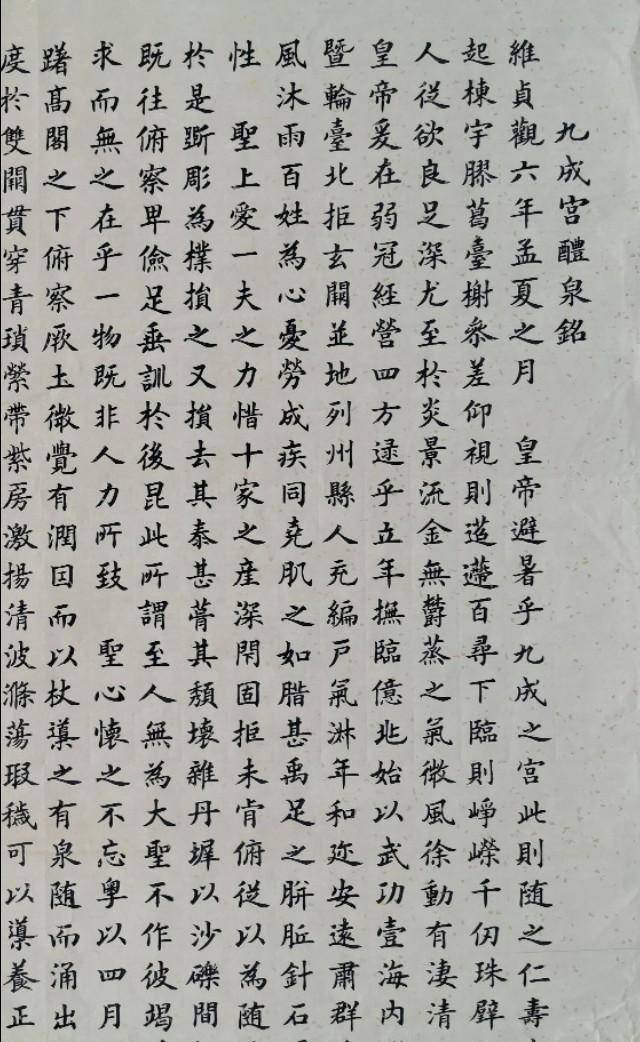 九成宫醴泉銘
維貞觀六年孟夏之月 皇帝避暑乎九成之宮此則随之仁壽
起棟宇膠葛臺榭叅差仰視則迢遰百尋下臨則崢嶸千仞珠壁
人從欲良足深尤至於炎景流金無鬱蒸之氣微風徐動有淒清
皇帝爰在弱冠經營四方逮乎立年撫臨億兆始以武功壹海内
暨輪臺北拒玄闕並地列州縣人充編戸氣淋年和迩安遠肅群
風沐雨百姓為心憂勞成疾同堯肌之如腊甚禹足之胼胝針石
性 聖上愛一夫之力惜十家之産深閇固拒未肯俯從以為随
於是斵彫為樸損之又損去其泰甚葺其頹壞雜丹墀以沙礫間
既往俯察卑儉足垂訓於後昆此所謂至人無為大聖不作彼竭
求而無之在乎一物既非人力所致 聖心懷之不忘粤以四月
躇髙閣之下俯察厥圡微覺有潤因而以杖導之有泉随而涌出
度於雙闕貫穿青瑣縈帶紫房激揚清波滌蕩瑕穢可以導養正